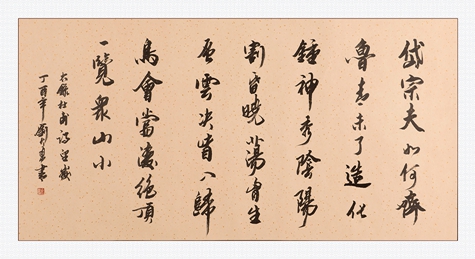 岱宗夫如何齊
魯青未了造化
鍾神秀陰陽
割昏曉蕩胸生
層雲決眥入歸
鳥會當凌絕頂
一覽衆山小
右錄杜甫詩望嶽
丁酉年劉書